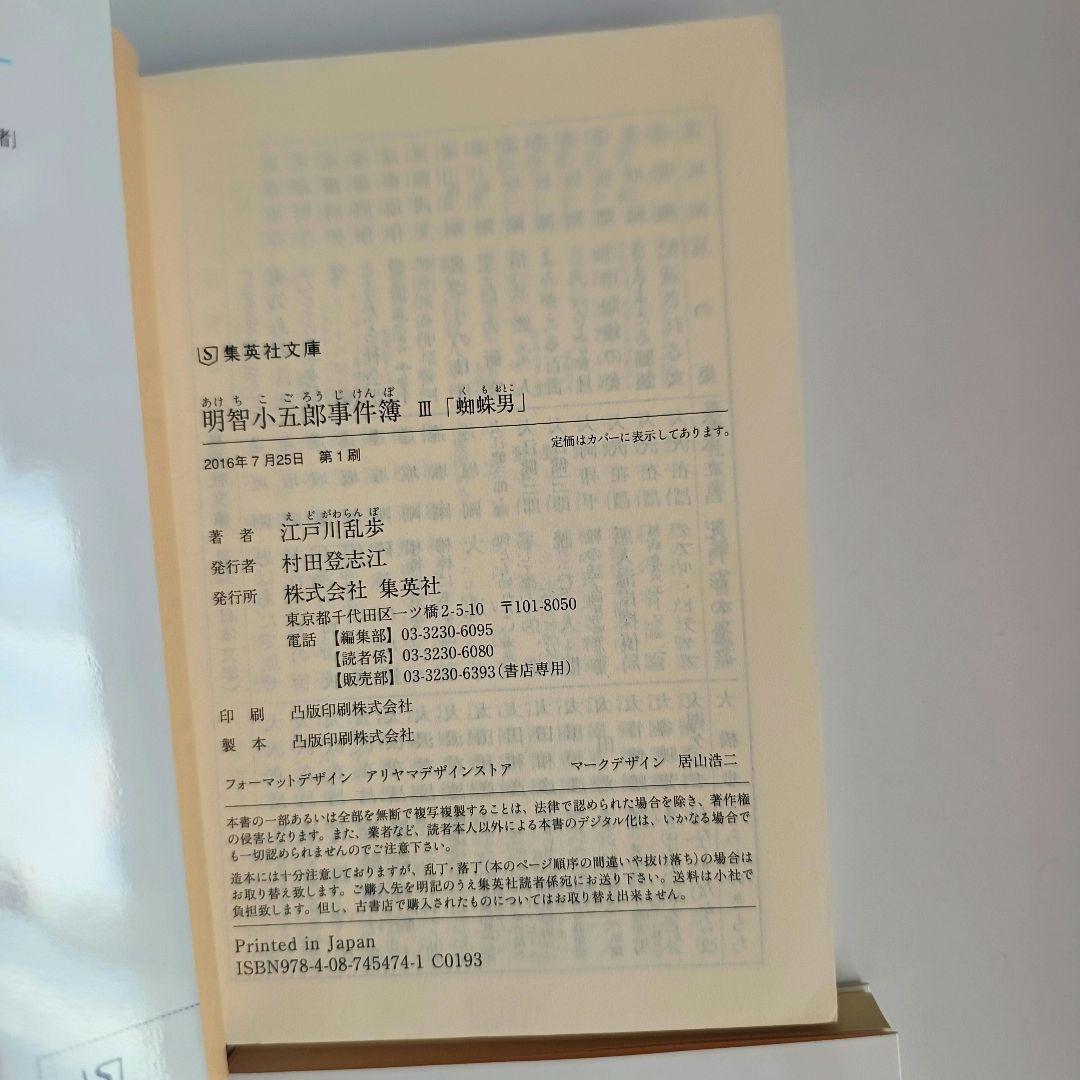 者」
S 集英社文庫
あけちこごろうじけんぼ くもおとこ
明智小五郎事件簿 Ⅲ「蜘蛛男」
定価はカバーに表示してあります。
2016年7月25日 第1刷
えどがわらんぽ
著者 江戸川乱歩
発行者 村田登志江
発行所 株式会社 集英社
東京都千代田区一ツ橋2-5-10 〒101-8050
電話 【編集部】03-3230-6095
【読者係】03-3230-6080
【販売部】03-3230-6393(書店専用)
印刷 凸版印刷株式会社
製本 凸版印刷株式会社
フォーマットデザイン アリヤマデザインストア マークデザイン 居山浩二
本書の一部あるいは全部を無断で複写複製することは、法律で認められた場合を除き、著作権
の侵害となります。また、業者など、読者本人以外による本書のデジタル化は、いかなる場合で
も一切認められませんのでご注意下さい。
造本には十分注意しておりますが、乱丁・落丁(本のページ順序の間違いや抜け落ち)の場合は
お取り替え致します。ご購入先を明記のうえ集英社読者係宛にお送り下さい。送料は小社で
負担致します。但し、古書店で購入されたものについてはお取り替え出来ません。
Printed in Japan
ISBN978-4-08-745474-1 C0193